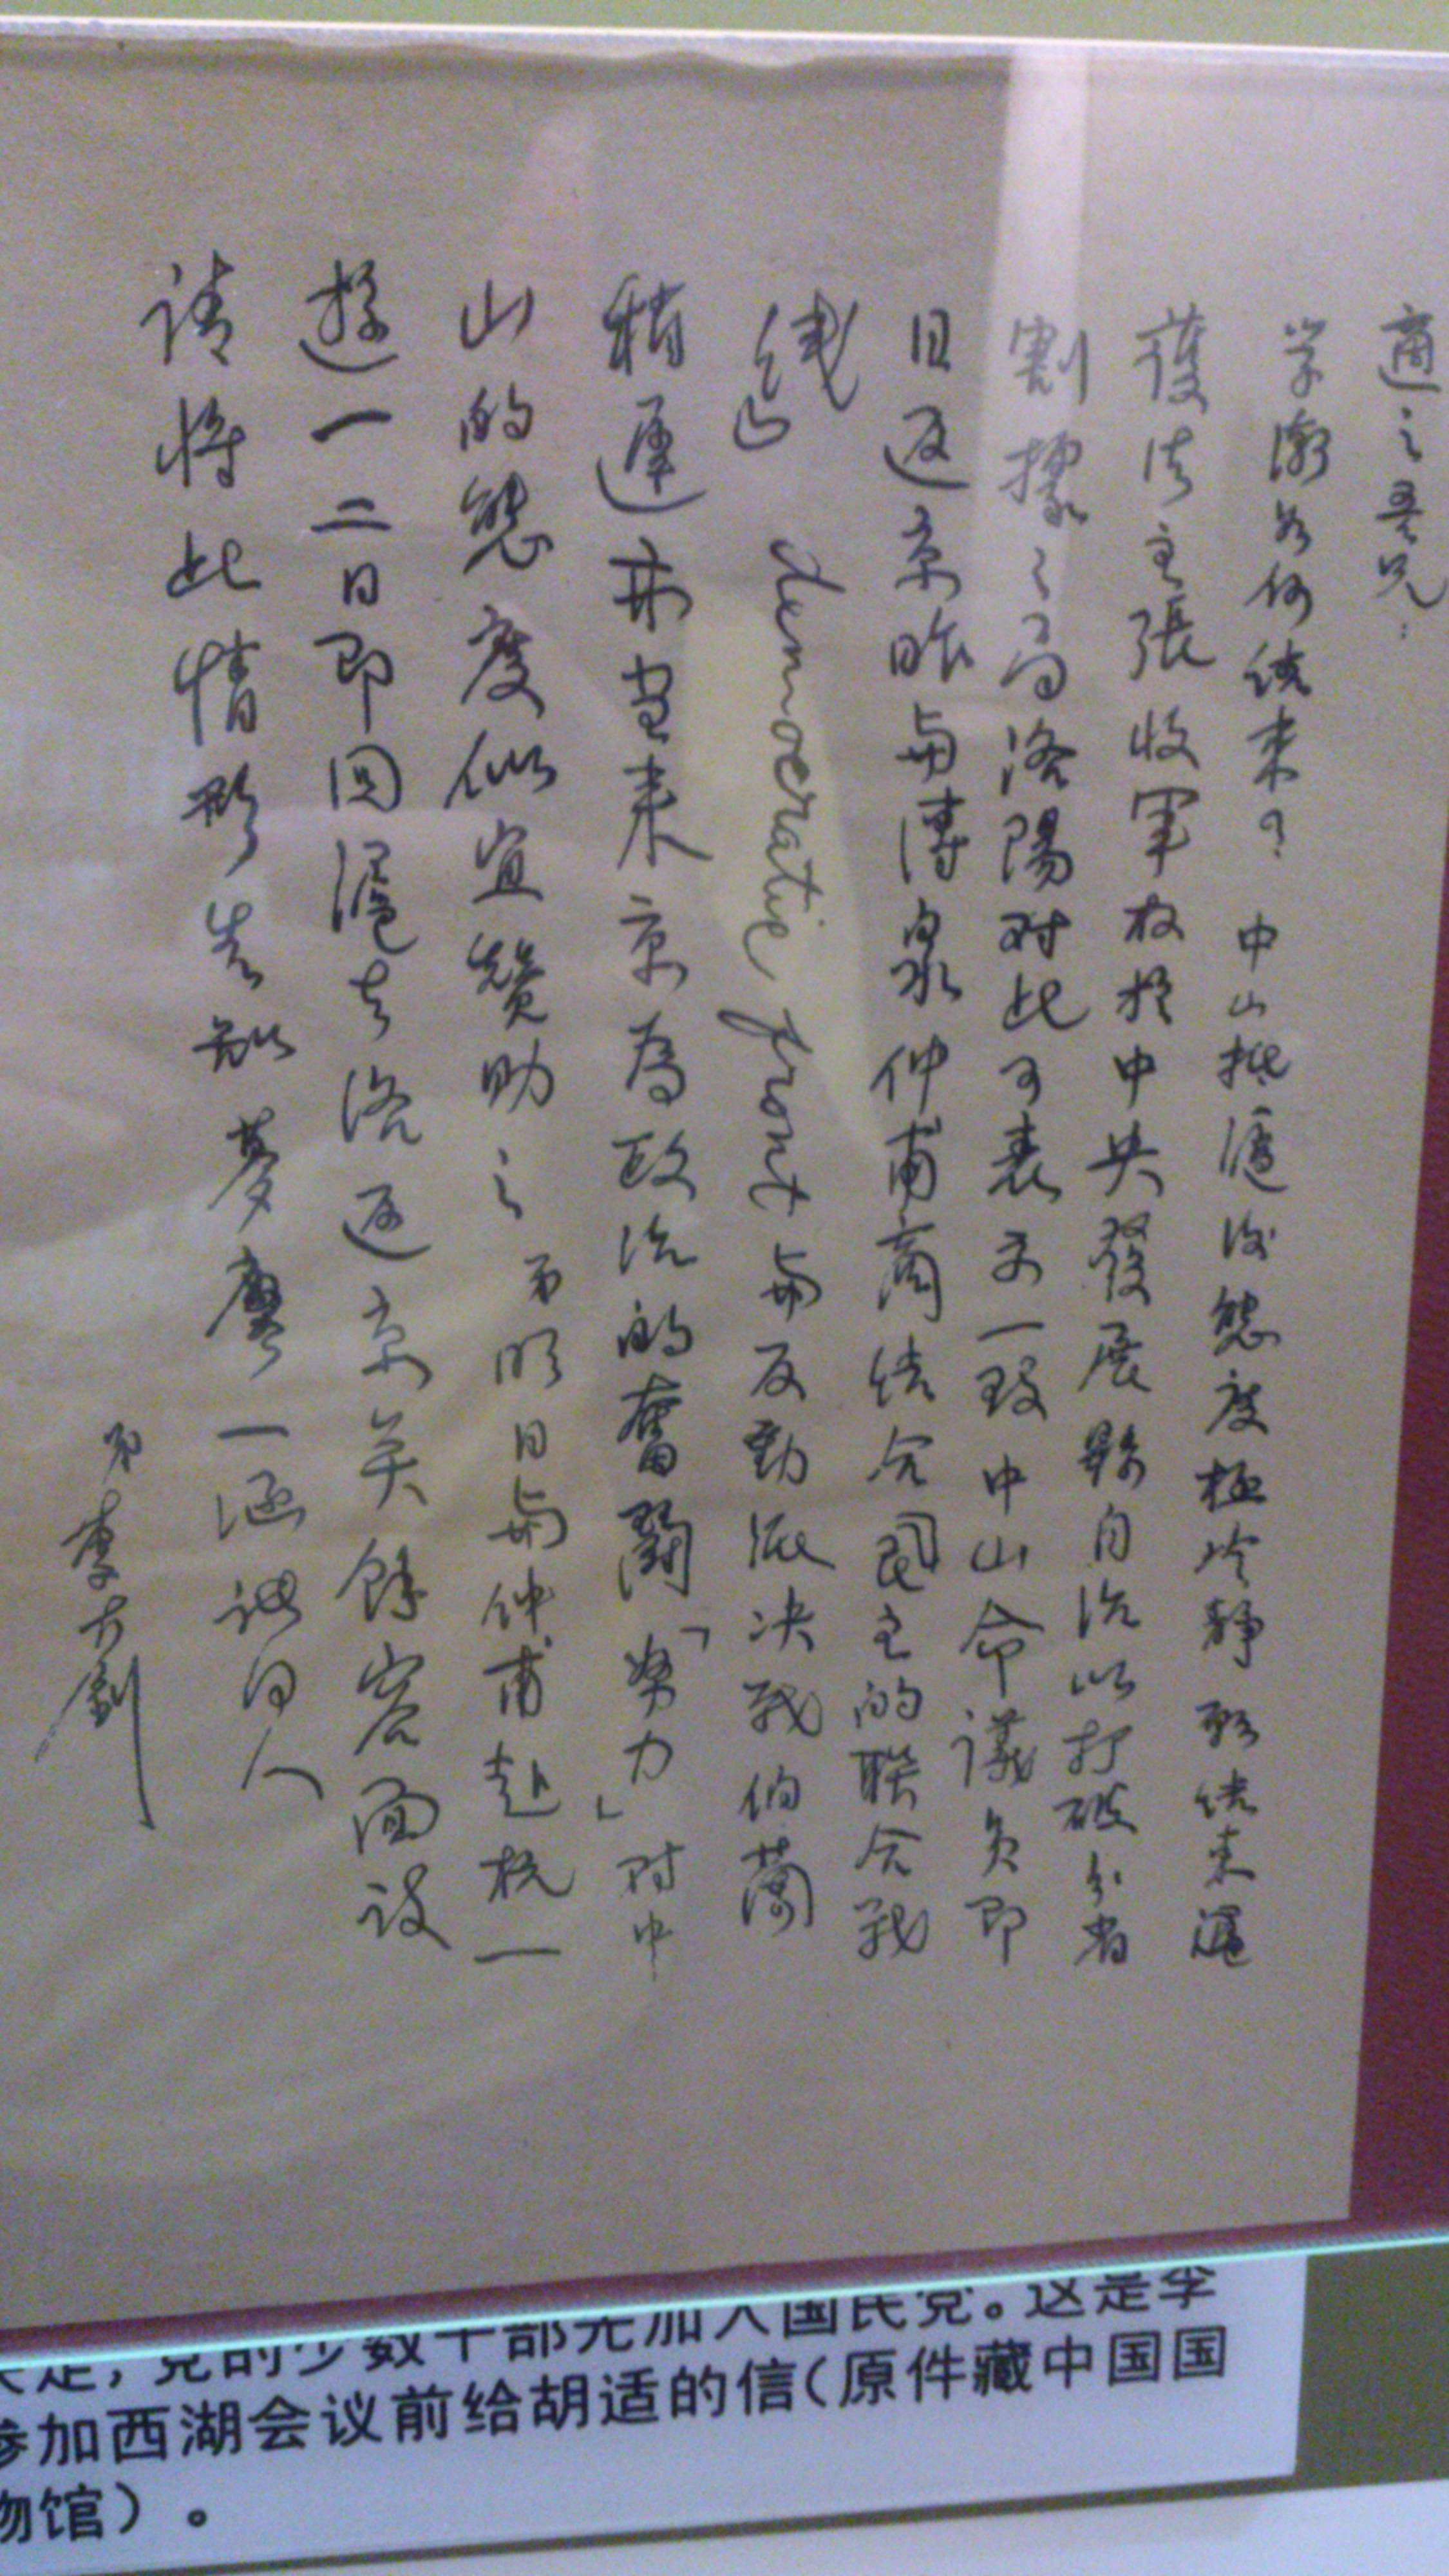 適之吾兄：
学潮如何结束？中山抵滬後態度極冷静  结束
護法主張收軍权於中央發展縣自治以打破分省
割據之局洛陽对此可表示一致中山命議員即
日返京昨與溥泉仲甫商结合民主的聯合戰
线」democratic front 與反動派决战伯蘭
稍遲亦当来京為政治的奮鬪「努力」对中
山的態度似宜贊助之弟明日與仲甫赴杭一
遊一二日即回滬去洛返京矣餘容面談
请将此情形告知夢麐一涵诸同人
弟李大釗
定，党的少数干部先加入国民党。这是李
参加西湖会议前给胡适的信（原件藏中国国
物馆）。